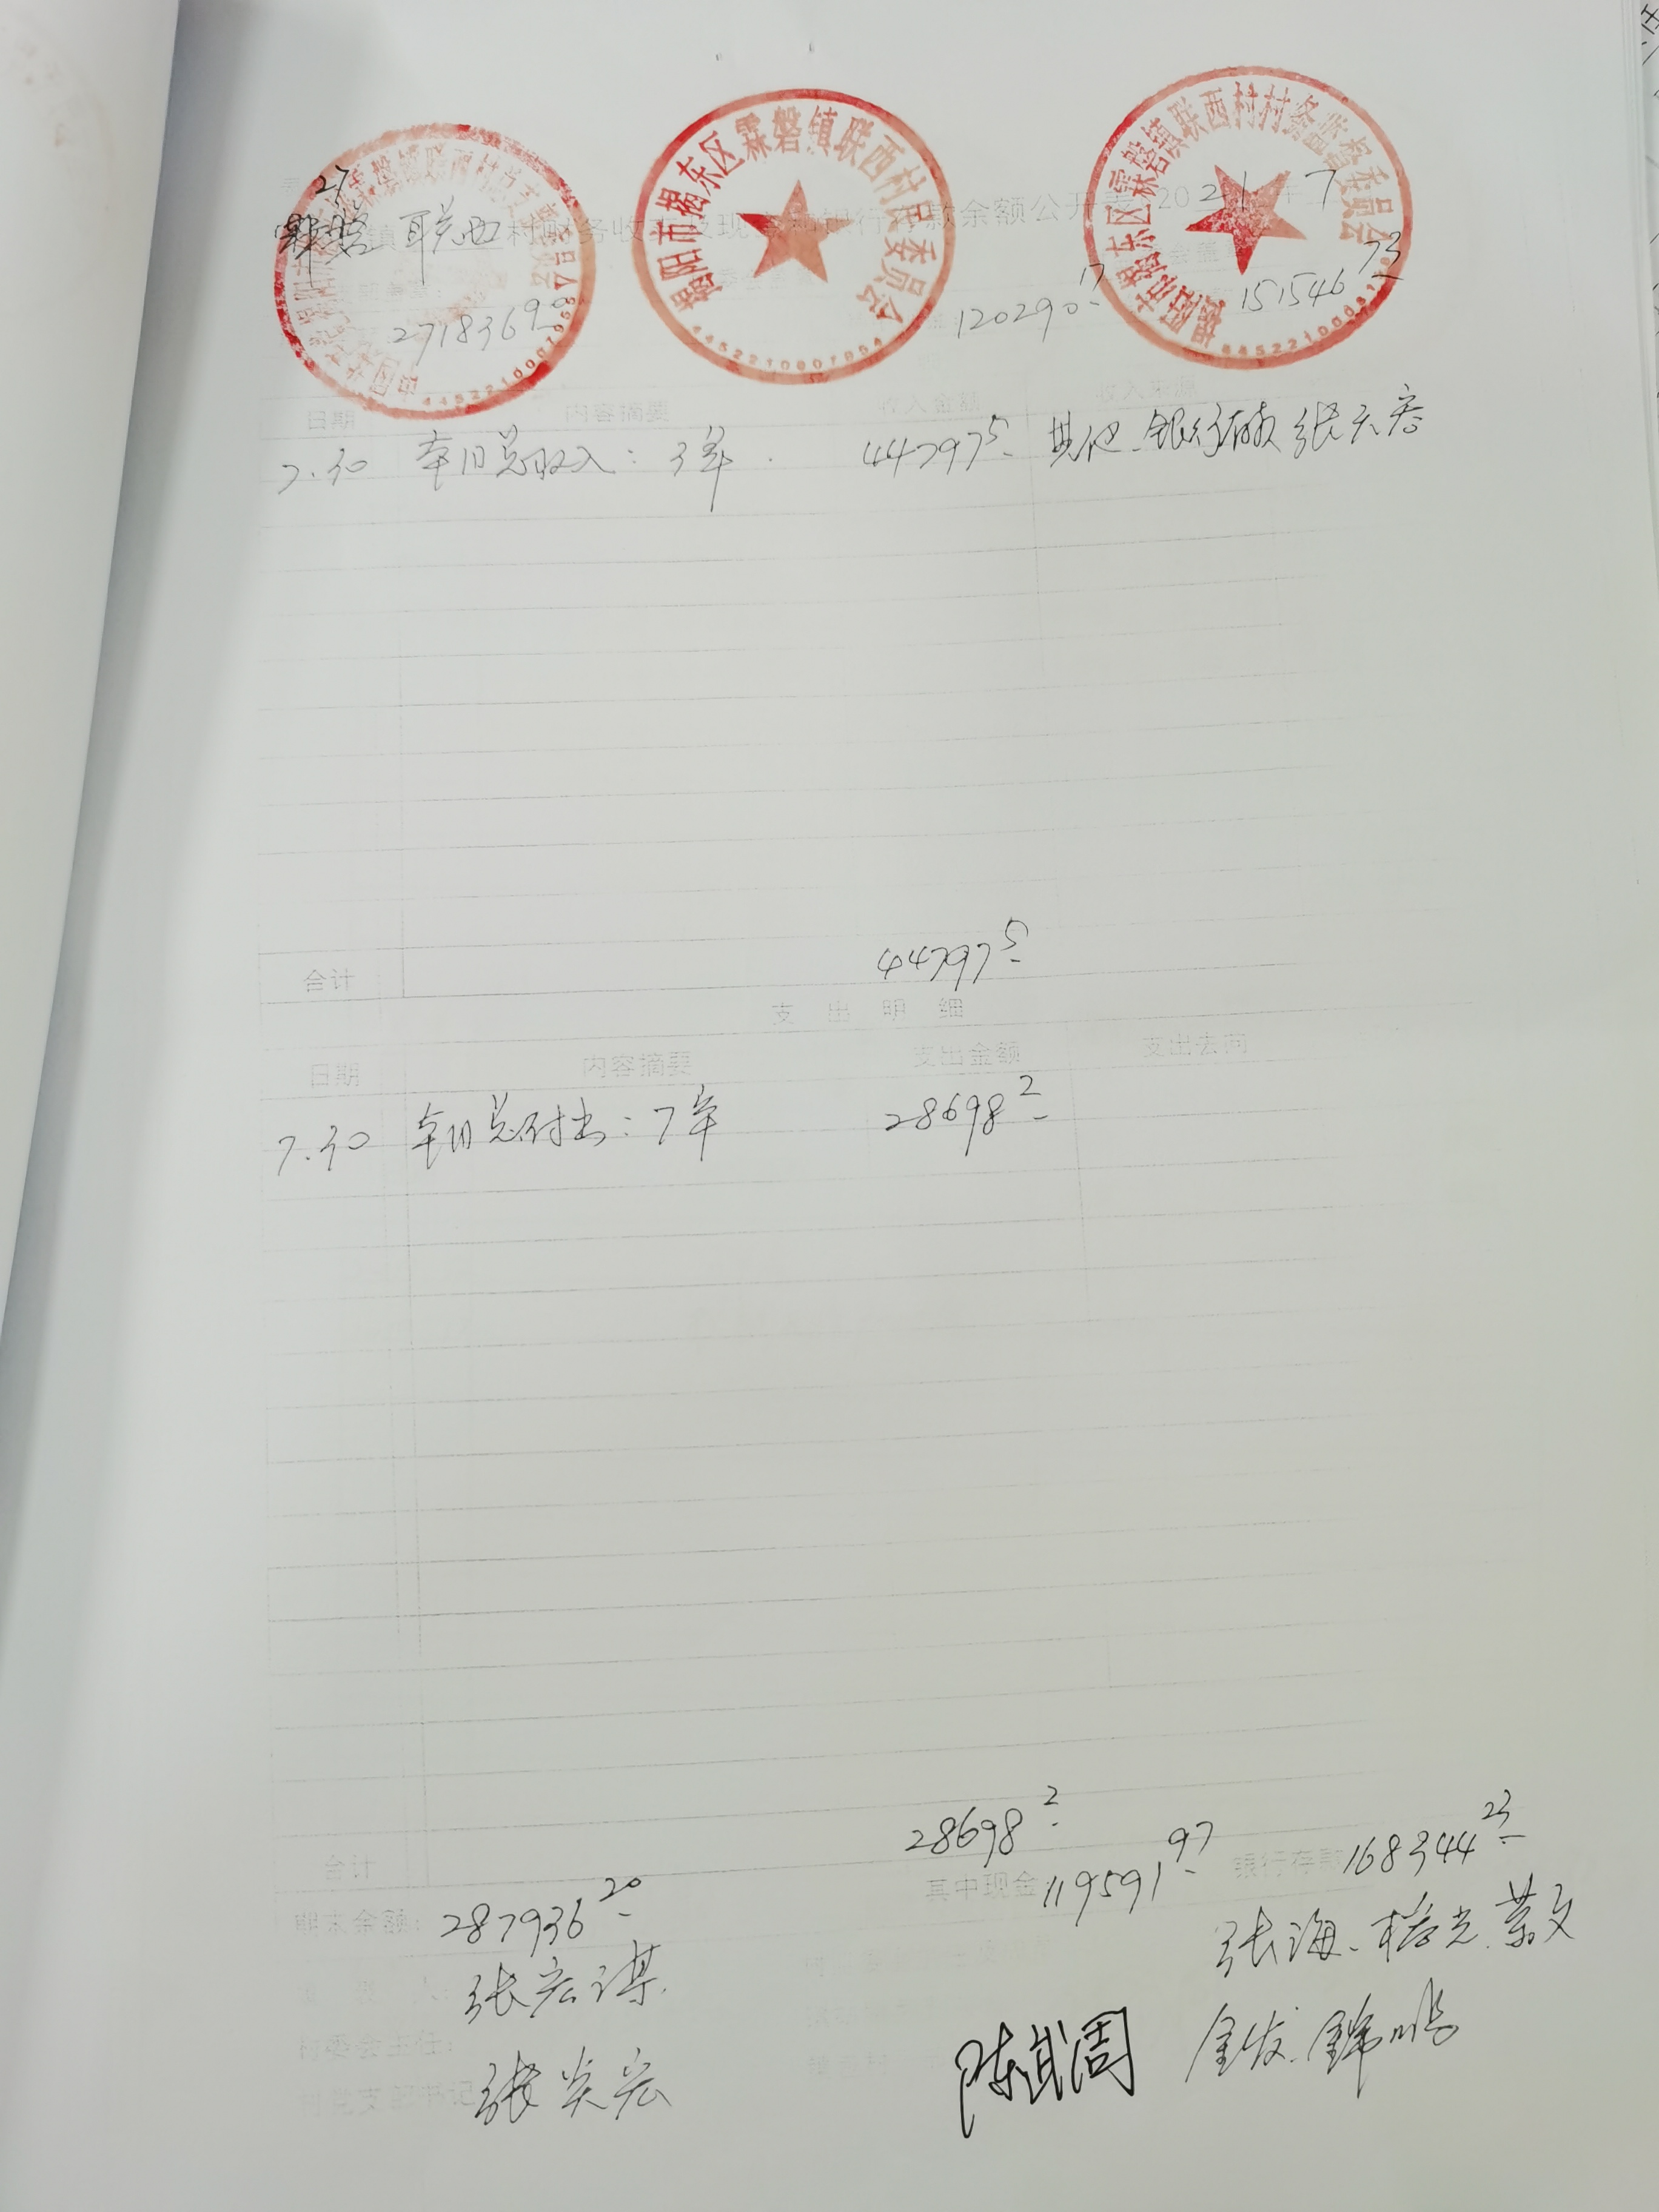 揭阳市揭东区霖磐镇联西村民委员会
揭阳市揭东区霖磐镇联西村村务监督委员会
霖磐镇联西村
27
霖磐 镇 联西 村财务收支及现金和银行存款余额公开表 2021年7
271836.90
120290.17
151546.73
日期 内容摘要 收入金额 收入来源
7.30 本月总收入：3单. 44797.5 其他.银行存款
合计 44797.5
支 出 明 细
日期 内容摘要 支出金额 支出去向
7.30 本月总付出：7单 28698.2
合计 28698.2
期末余额：287936.20 其中现金 119591.97 银行存款 168344.23
张宏谋 张海.
村委会主任：
村党支部书记 张炎宏 陈武周